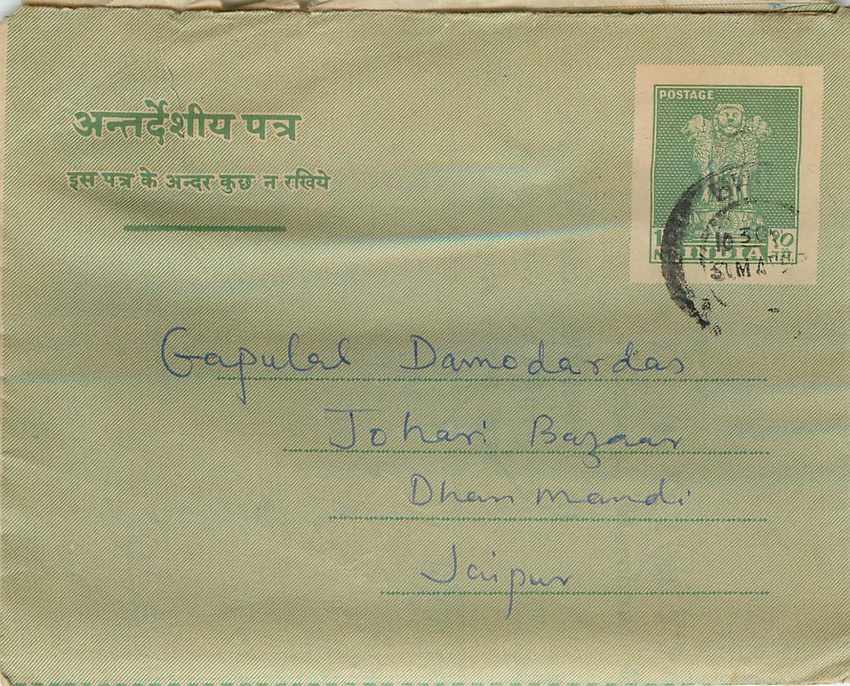 अन्तर्देशीय पत्र
इस पत्र के अन्दर कुछ न रखिये
POSTAGE
१०
INDIA
10 30
Gapulal Damodardas
Johari Bazaar
Dhan mandi
Jaipur